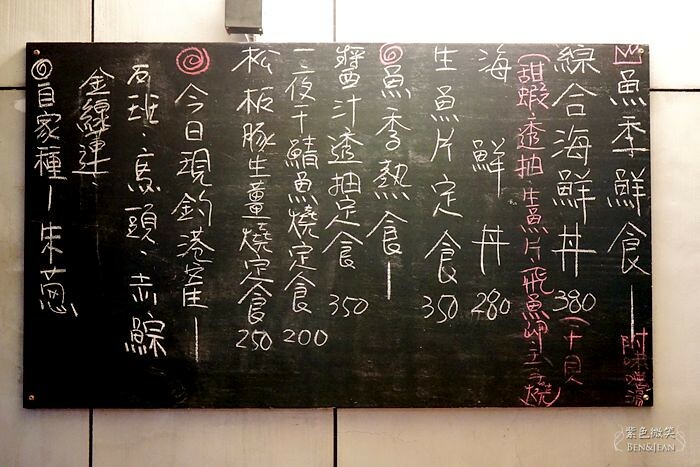 魚季鮮食—
附味噌湯
綜合海鮮丼 380 (干貝
(甜蝦.透抽.生魚片.飛魚卵.玉子燒)
海鮮丼 280
生魚片定食 350
魚季熱食—
醬汁透抽定食 350
一夜干鯖魚燒定食 200
松板豚生薑燒定食 250
今日現釣港產—
石斑、馬頭、赤鯮
金線連、
自家種—朱蔥
紫色微笑
BEN&JEAN